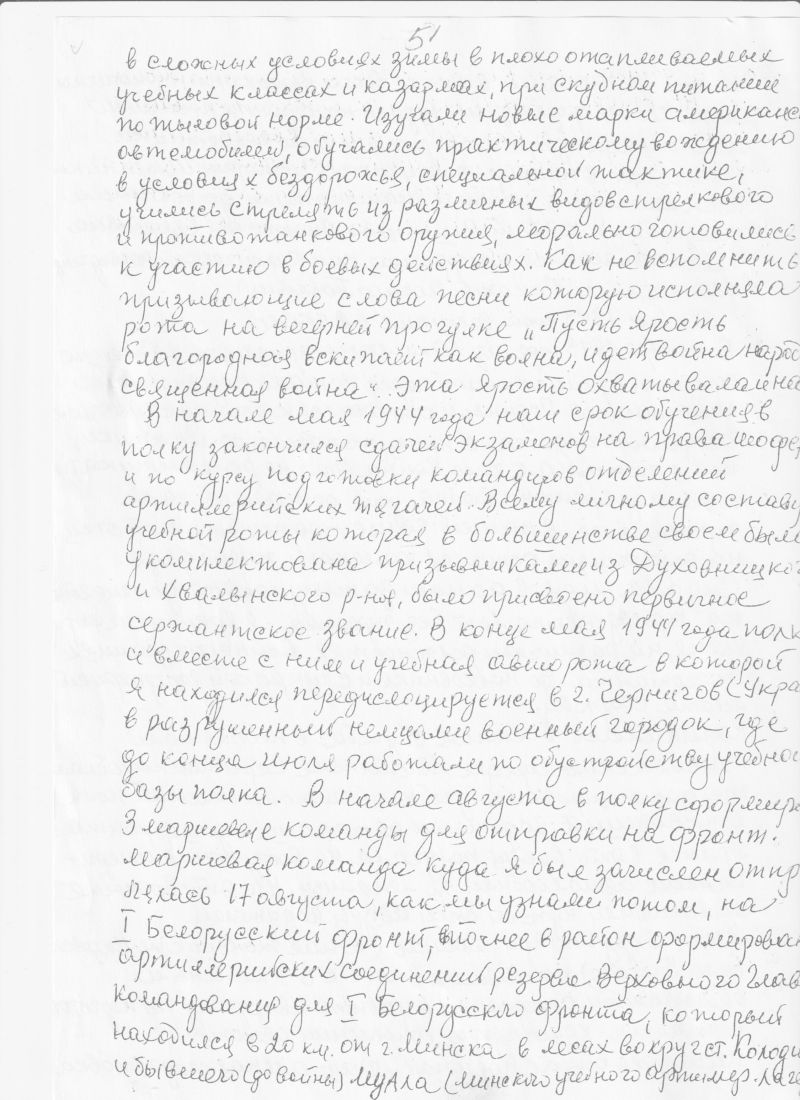 51
в сложных условиях зимы в плохо отапливаемых
учебных классах и казармах, при скудном питании
по тыловой норме. Изучали новые марки американс
автомобилей, обучались практическому вождению
в условиях бездорожья, специальной тактике,
учились стрелять из различных видов стрелкового
и противотанкового оружия, морально готовились
к участию в боевых действиях. Как не вспомнить
призывающие слова песни которую исполняла
рота на вечерней прогулке „Пусть Ярость
благородная вскипает как волна, идет война народ
священная война“. Эта Ярость охватывала и на
В начале мая 1944 года наш срок обучения в
полку закончился сдачей экзаменов на права шофер
и по курсу подготовки командиров отделений
артиллерийских тягачей. Всему личному составу
учебной роты которая в большинстве своем был
укомплектована призывниками из Духовницког
и Хвалынского р-ня, было присвоено первичное
сержантское звание. В конце мая 1944 года полк
и вместе с ним и учебная авторота в которой
я находился передислоцируется в г. Чернигов (Укра
в разрушенный немцами военный городок, где
до конца июля работали по обустройству учебной
базы полка. В начале августа в полку сформиро
3 маршевые команды для отправки на фронт.
маршевая команда куда я был зачислен отпр
лялась 17 августа, как мы узнали потом, на
I Белорусский фронт, точнее в район формирован
артиллерийских соединений резерва Верховного Глав
командования для I Белорусскго фронта, который
находился в 20 км. от г. Минска в лесах вокруг ст. Колоди
и бывшего (до войны) МУАЛа (минского учебного артиллер. лаге